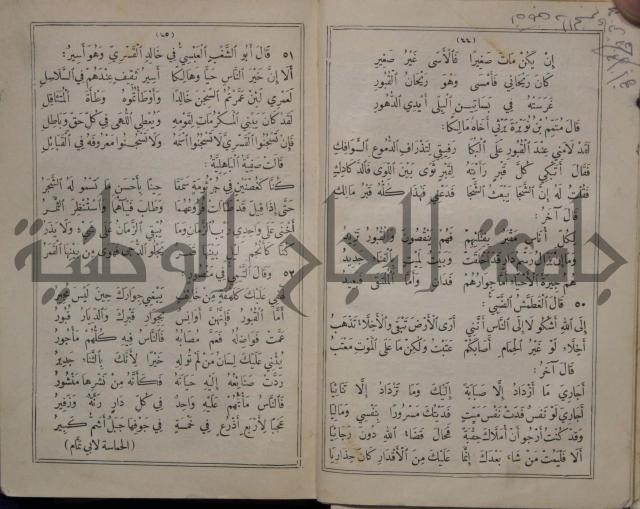 (٤٤)
إِنْ يَكُنْ مَاتَ صَغِيرًا فَالْأَسَى غَيْرُ صَغِيرِ
كَانَ رَيْحَانِي فَأَمْسَى وَهُوَ رَيْحَانُ الْقُبُورِ
غَرَسَتْهُ فِي بَسَاتِينِ الْبِلَى أَيْدِي الدُّهُورِ
قَالَ مُتَمِّمُ بْنُ نُوَيْرَةَ يَرْثِي أَخَاهُ مَالِكًا:
لَقَدْ لَامَنِي عِنْدَ الْقُبُورِ عَلَى الْبُكَا رَفِيقِي لِتَذْرَافِ الدُّمُوعِ السَّوَافِكِ
فَقَالَ أَتَبْكِي كُلَّ قَبْرٍ رَأَيْتَهُ لِقَبْرٍ ثَوَى بَيْنَ اللِّوَى فَالدَّكَادِكِ
فَقُلْتُ لَهُ إِنَّ الشَّجَا يَبْعَثُ الشَّجَا فَدَعْنِي فَهٰذَا كُلُّهُ قَبْرُ مَالِكِ
قَالَ آخَرُ:
لِكُلِّ أُنَاسٍ مَقْبَرٌ بِفِنَائِهِمْ فَهُمْ يَنْقُصُونَ وَالْقُبُورُ تَزِيدُ
وَمَا إِنْ يَزَالُ رَسْمُ دَارٍ قَدَ اخْلَقَتْ وَبَيْتٌ لِمَيْتٍ بِالْفِنَاءِ جَدِيدُ
هُمُ جِيرَةُ الْأَحْيَاءِ أَمَّا جِوَارُهُمْ فَدَانٍ وَأَمَّا الْمُلْتَقَى فَبَعِيدُ
٥٠ قَالَ الْغَطَمَّشُ الضَّبِّيُّ:
إِلَى اللهِ أَشْكُو لَا إِلَى النَّاسِ أَنَّنِي أَرَى الْأَرْضَ تَبْقَى وَالْأَخِلَّاءَ تَذْهَبُ
أَخِلَّاءِ لَوْ غَيْرُ الْحِمَامِ أَصَابَكُمْ عَتَبْتُ وَلٰكِنْ مَا عَلَى الْمَوْتِ مَعْتَبُ
قَالَ آخَرُ:
أَجَارِيَ مَا أَزْدَادُ إِلَّا صَبَابَةً إِلَيْكَ وَمَا تَزْدَادُ إِلَّا تَنَائِيَا
أَجَارِيَ لَوْ نَفْسٌ فَدَتْ نَفْسَ مَيِّتٍ فَدَيْتُكَ مَسْرُورًا بِنَفْسِي وَمَالِيَا
وَقَدْ كُنْتُ أَرْجُو أَنْ أُمَلَّاكَ حِقْبَةً فَحَالَ قَضَاءُ اللهِ دُونَ رَجَائِيَا
أَلَا فَلْيَمُتْ مَنْ شَاءَ بَعْدَكَ إِنَّمَا عَلَيْكَ مِنَ الْأَقْدَارِ كَانَ حِذَارِيَا
(٤٥)
٥١ قَالَ أَبُو الشَّغْبِ الْعَبْسِيُّ فِي خَالِدٍ الْقَسْرِيِّ وَهُوَ أَسِيرٌ:
أَلَا إِنَّ خَيْرَ النَّاسِ حَيًّا وَهَالِكًا أَسِيرُ ثَقِيفٍ عِنْدَهُمْ فِي السَّلَاسِلِ
لَعَمْرِي لَئِنْ عَمَّرْتُمُ السِّجْنَ خَالِدًا وَأَوْطَأْتُمُوهُ وَطْأَةَ الْمُتَثَاقِلِ
لَقَدْ كَانَ يَبْنِي الْمَكْرُمَاتِ لِقَوْمِهِ وَيُعْطِي اللُّهَى فِي كُلِّ حَقٍّ وَبَاطِلِ
فَإِنْ تَسْجُنُوا الْقَسْرِيَّ لَا تَسْجُنُوا اسْمَهُ وَلَا تَسْجُنُوا مَعْرُوفَهُ فِي الْقَبَائِلِ
قَالَتْ صَفِيَّةُ الْبَاهِلِيَّةُ:
كُنَّا كَغُصْنَيْنِ فِي جُرْثُومَةٍ سَمَقَا حِينًا بِأَحْسَنِ مَا تَسْمُو لَهُ الشَّجَرُ
حَتَّى إِذَا قِيلَ قَدْ طَالَتْ فُرُوعُهُمَا وَطَابَ فَيْآهُمَا وَاسْتُنْظِرَ الثَّمَرُ
أَخْنَى عَلَى وَاحِدِي رَيْبُ الزَّمَانِ وَمَا يُبْقِي الزَّمَانُ عَلَى شَيْءٍ وَلَا يَذَرُ
كُنَّا كَأَنْجُمِ لَيْلٍ بَيْنَهَا قَمَرٌ يَجْلُو الدُّجَى فَهَوَى مِنْ بَيْنِهَا الْقَمَرُ
٥٢ وَقَالَ التَّيْمِيُّ فِي مَنْصُورٍ:
لَهْفِي عَلَيْكَ لِلَهْفَةٍ مِنْ خَائِفٍ يَبْغِي جِوَارَكَ حِينَ لَيْسَ مُجِيرُ
أَمَّا الْقُبُورُ فَإِنَّهُنَّ أَوَانِسٌ بِجِوَارِ قَبْرِكَ وَالدِّيَارُ قُبُورُ
عَمَّتْ فَوَاضِلُهُ فَعَمَّ مُصَابُهُ فَالنَّاسُ فِيهِ كُلُّهُمْ مَأْجُورُ
يُثْنِي عَلَيْكَ لِسَانُ مَنْ لَمْ تُولِهِ خَيْرًا لِأَنَّكَ بِالثَّنَاءِ جَدِيرُ
رَدَّتْ صَنَائِعُهُ إِلَيْهِ حَيَاتَهُ فَكَأَنَّهُ مِنْ نَشْرِهَا مَنْشُورُ
فَالنَّاسُ مَأْتَمُهُمْ عَلَيْهِ وَاحِدٌ فِي كُلِّ دَارٍ رَنَّةٌ وَزَفِيرُ
عَجَبًا لِأَرْبَعِ أَذْرُعٍ فِي خَمْسَةٍ فِي جَوْفِهَا جَبَلٌ أَشَمُّ كَبِيرُ
(الحماسة لابي تمام)
جامعة النجاح الوطنية